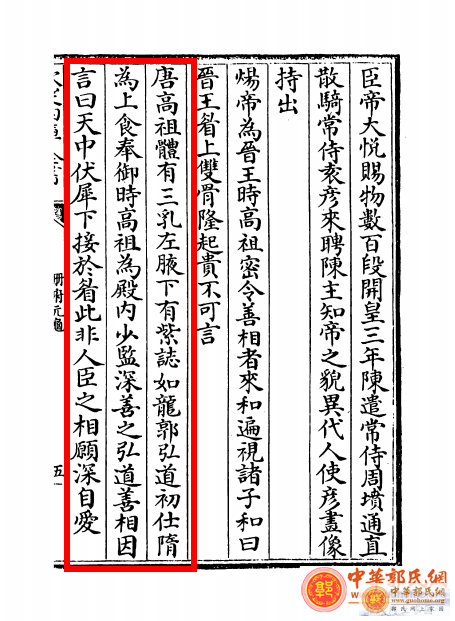 臣帝大悅賜物數百段開皇三年陳遣常侍周墳通直
散騎常侍袁彦來聘陳主知帝之貌異代人使彦畫像
持出
煬帝為晉王時高祖密令善相者來和遍視諸子和曰
晉王眉上雙骨隆起貴不可言
唐高祖體有三乳左腋下有紫誌如龍郭弘道初仕隋
為上食奉御時高祖為殿内少監深善之弘道善相因
言曰天中伏犀下接於眉此非人臣之相願深自愛
册府元龜
五
中華郭氏網
中華郭氏網
www.guohome.org
郭氏網上家園